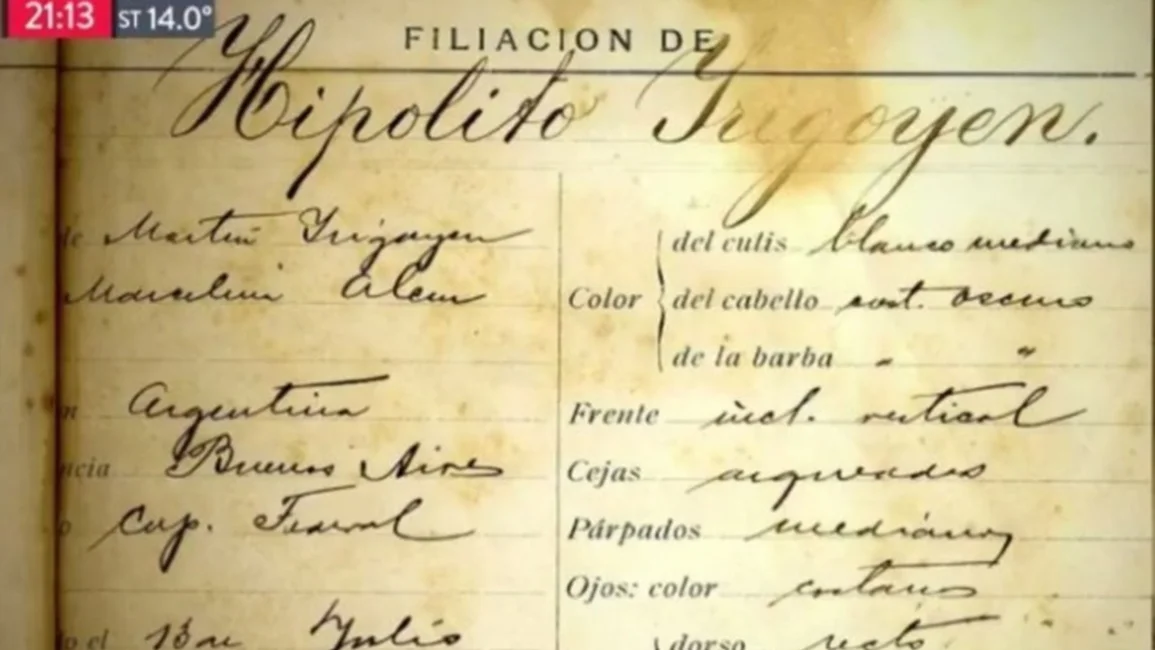 21:13 ST 14.0°
FILIACION DE
Hipolito Yrigoyen.
de Martin Yrigoyen
Marcelina Alem
Argentina
ncia Buenos Aires
o Cap. Federal
do el 13 de Julio
Color
del cutis blanco mediano
del cabello cast. oscuro
de la barba " "
Frente incl. vertical
Cejas arqueadas
Párpados medianos
Ojos: color castanos
dorso recto